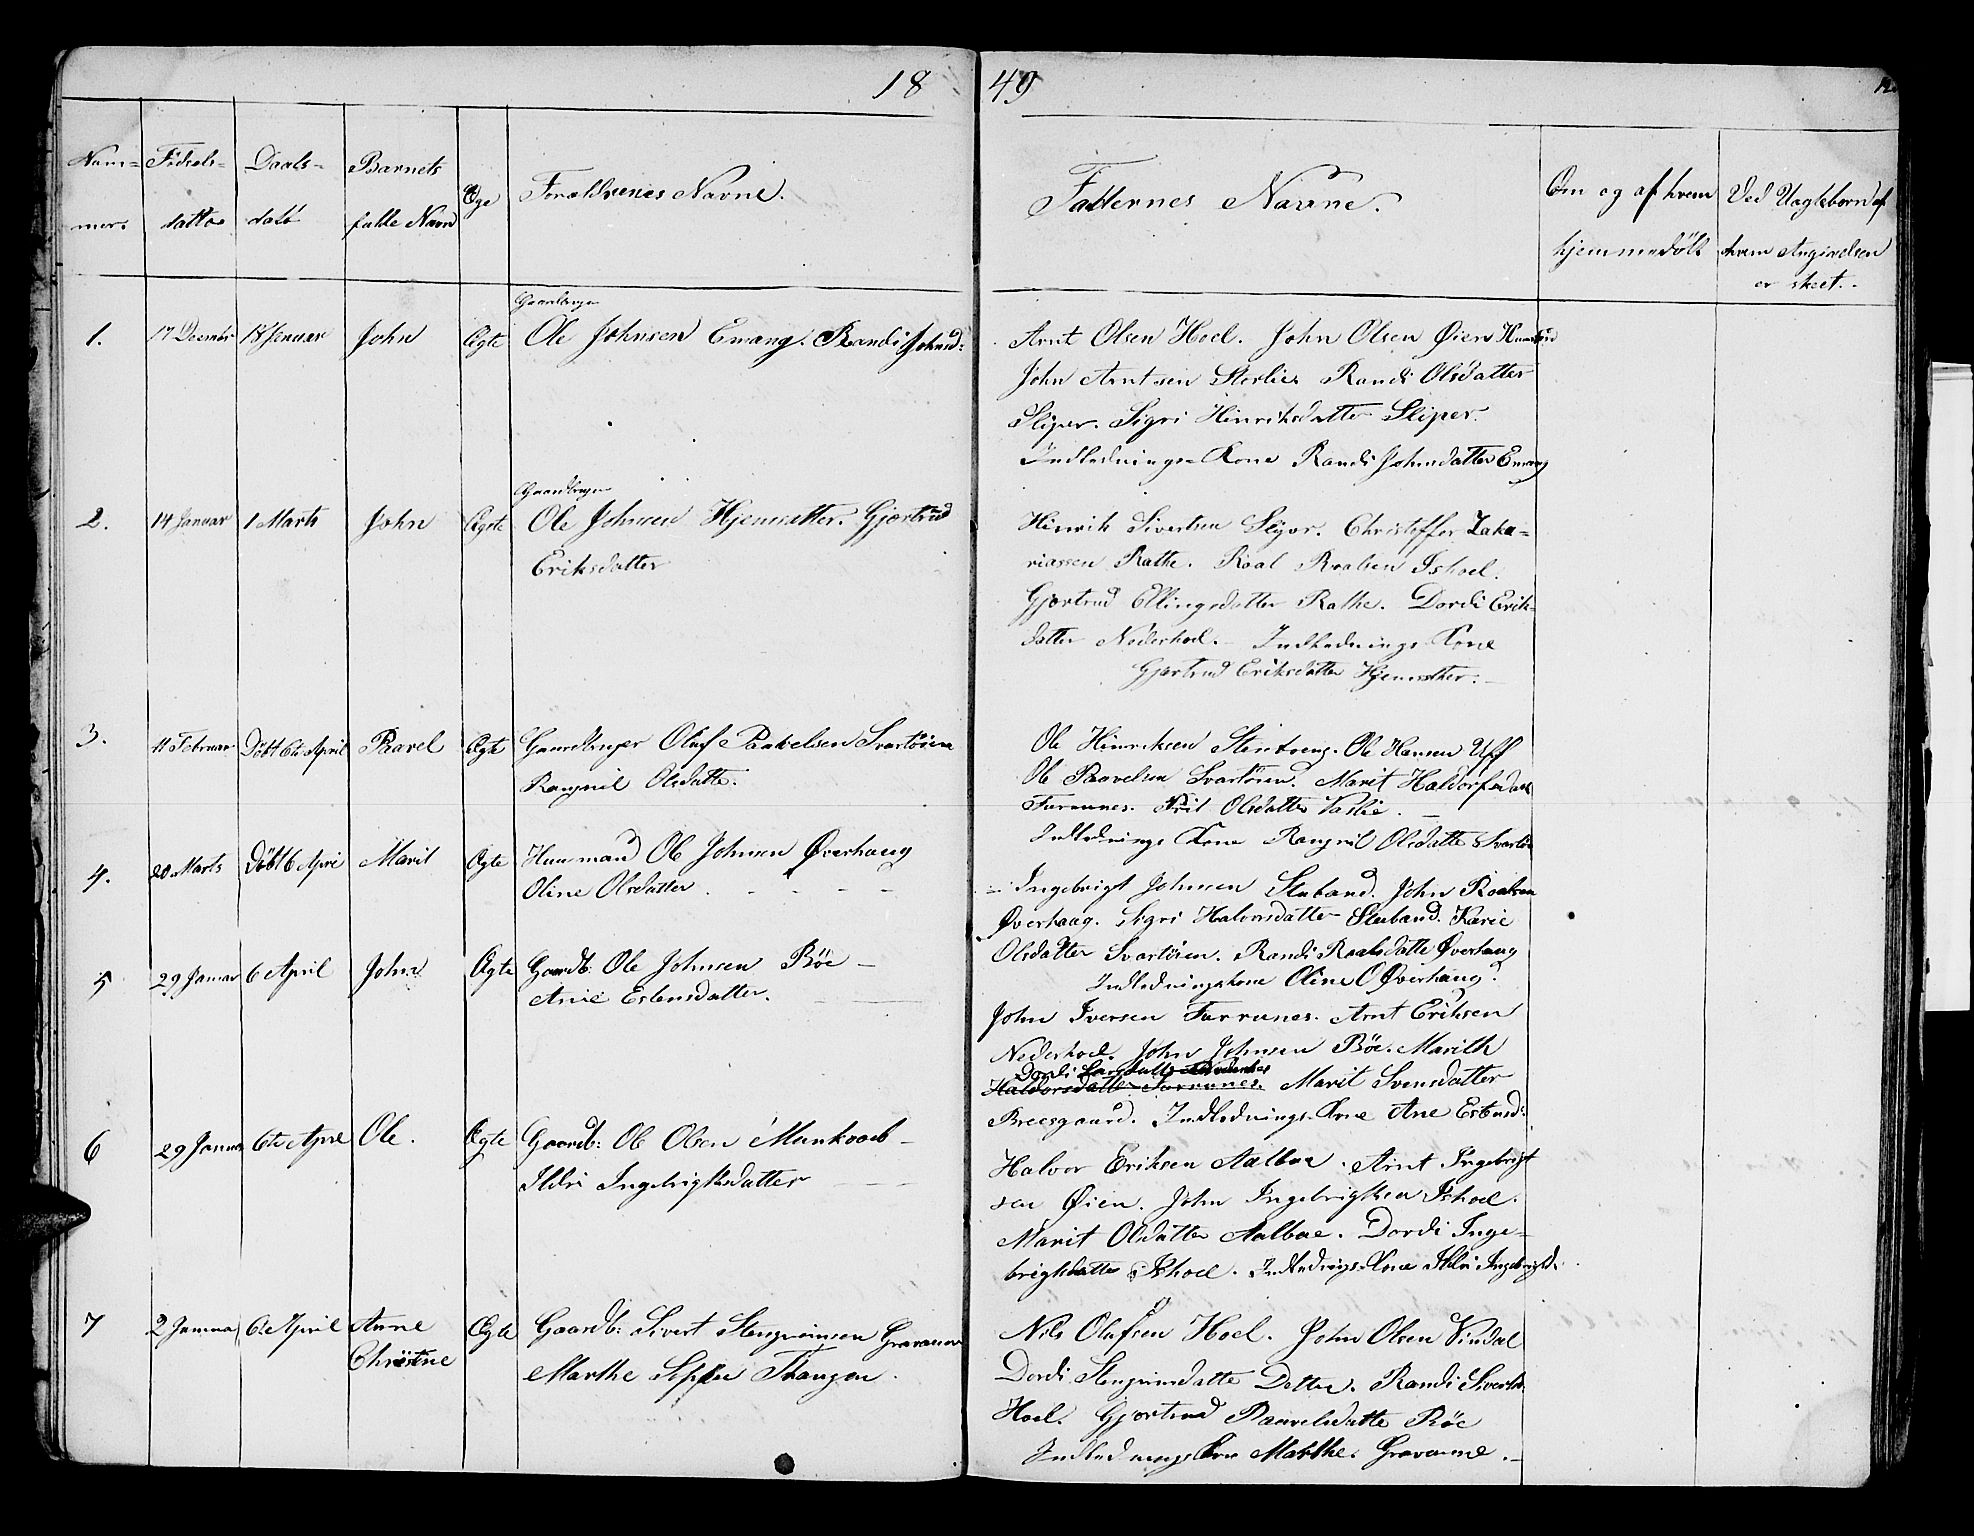 18 49
Num= Födsels= Daabs= Barnets Ægte Forældrenes Navne. Faddernes Navne. Om og af hvem Ved Uægtebørn af
mer. datto dato fulde Navn hjemmedöbt hvem Angivelsen
er skeet.
Gaardbruger
1. 17 Decembr 18 Januar John Ægte Ole Johnsen Emang. Randi Johnsd:
Arnt Olsen Hoel. John Olsen Øien
John Arntsen Storlien Randi Olsdatter
Sliper. Sigri Hinriksdatter Sliper.
Indlednings=Kone Randi Johnsdatter Emang
Gaardbruger
2. 14 Januar 1 Marts John Ægte Ole Johnsen Hjemsætter. Gjertrud
Eriksdatter
Hinrik Sivertsen Sliper. Christoffer Zaka=
riassen Rathe. Roal Roalsen Ishoel.
Gjertrud Ellingsdatter Rathe. Dordi Erik-
datter Nederhoel. - Indlednings Kone
Gjertrud Eriksdatter Hjemsæther. -
3. 11 Februar Döbt 6te April Paavel Ægte Gaardbruger Oluf Paavelsen Svartöien
Rangnil Olsdatte.
Ole Hinriksen Stenboeng. Ole Hansen Uff
Ole Paavelsen Svartöien. Marit Haldorsdatt
Furrunes. Olsdatter
Indlednings Kone Rangnil Olsdatte Svartöi
4. 20 Marts Döbt 6 April Marit Ægte Huusmand Ole Johnsen Øverhaug
Oline Olsdatter
Ingebrigt Johnsen Stuband. John Roalsen
Øverhaug. Sigri Halvorsdatter Stuband. Karie
Olsdatter Svartöien. Randi Roalsdatte Øverhaug
Indledningskone Oline O Øverhaug.
5 29 Januar 6 April John Ægte Gaardb: Ole Johnsen Böe -
Anne Estensdatter.
John Iversen Furrunes. Arnt Eriksen
Nederhoel. John Johnsen Böe. Marith
Dordi Larsdatte Nederhoe
Haldorsdatter Furrunes. Marit Svensdatter
Breesgaard. Indlednings=Kone Ane Estensd:
6 29 Januar 6te April Ole. Ægte Gaardb: Ole Olsen Munkvold -
Ildri Ingebrigtsdatter
Halvor Eriksen Aalbue. Arnt Ingebrigt
sen Øien. John Ingebrigtsen Ishoel.
Marit Olsdatter Aalbue. Dordi Inge-
brigtsdatte Ishoel. Indlednings=Kone Ildri Ingebrigtsd.
7 2 Januar 6te April Anne Ægte Gaardb: Sivert Stengrimsen Gravaune
Christine Marthe
Nils Olufsen Hoel. John Olsen Vindal
Dordi Stengrimsdatte Detlie. Randi Siverts
Hoel. Gjertrud Paavelsdatte Böe
Indlednings Kone Marthe Gravaune. -